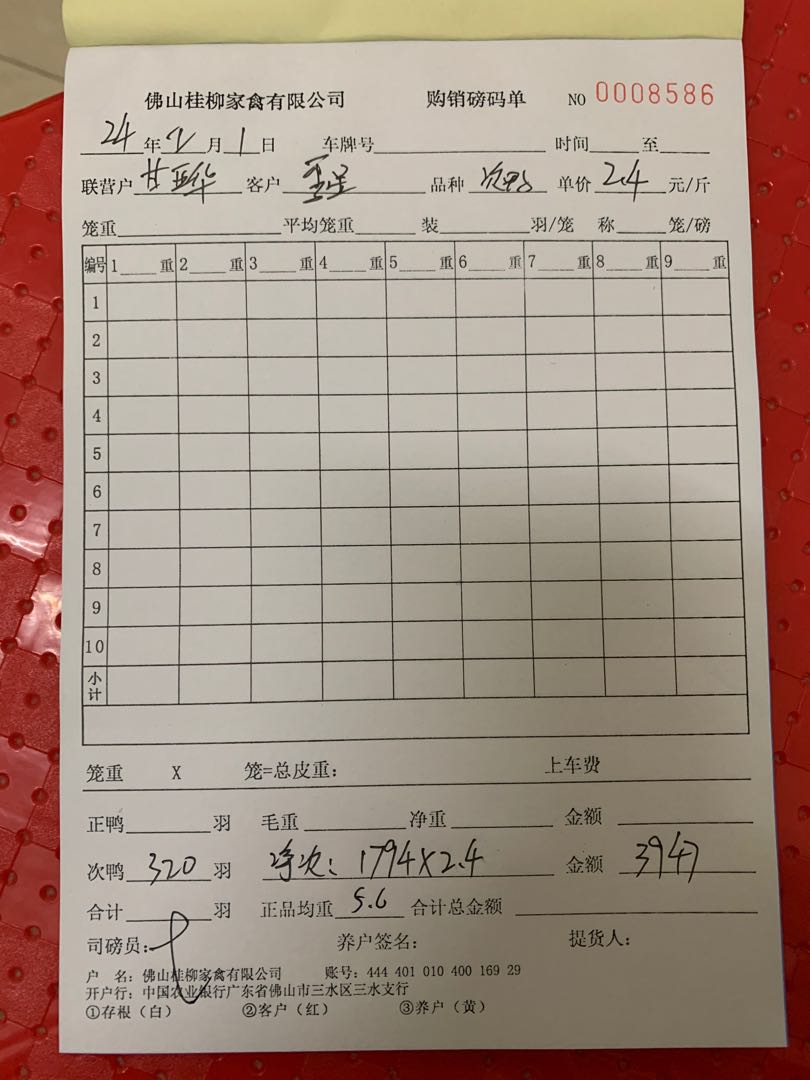 佛山桂柳家禽有限公司 购销磅码单 NO 0008586
24年2月1日 车牌号 时间 至
联营户 甘亚华 客户 品种 次鸭 单价 2.4 元/斤
笼重 平均笼重 装 羽/笼 称 笼/磅
编号 1 重 2 重 3 重 4 重 5 重 6 重 7 重 8 重 9 重
1
2
3
4
5
6
7
8
9
10
小计
笼重 X 笼=总皮重: 上车费
正鸭 羽 毛重 净重 金额
次鸭 320 羽 净次: 1794×2.4 金额 3947
合计 羽 正品均重 5.6 合计总金额
司磅员: 养户签名: 提货人:
户 名: 佛山桂柳家禽有限公司 账号: 444 401 010 400 169 29
开户行: 中国农业银行广东省佛山市三水区三水支行
①存根（白） ②客户（红） ③养户（黄）